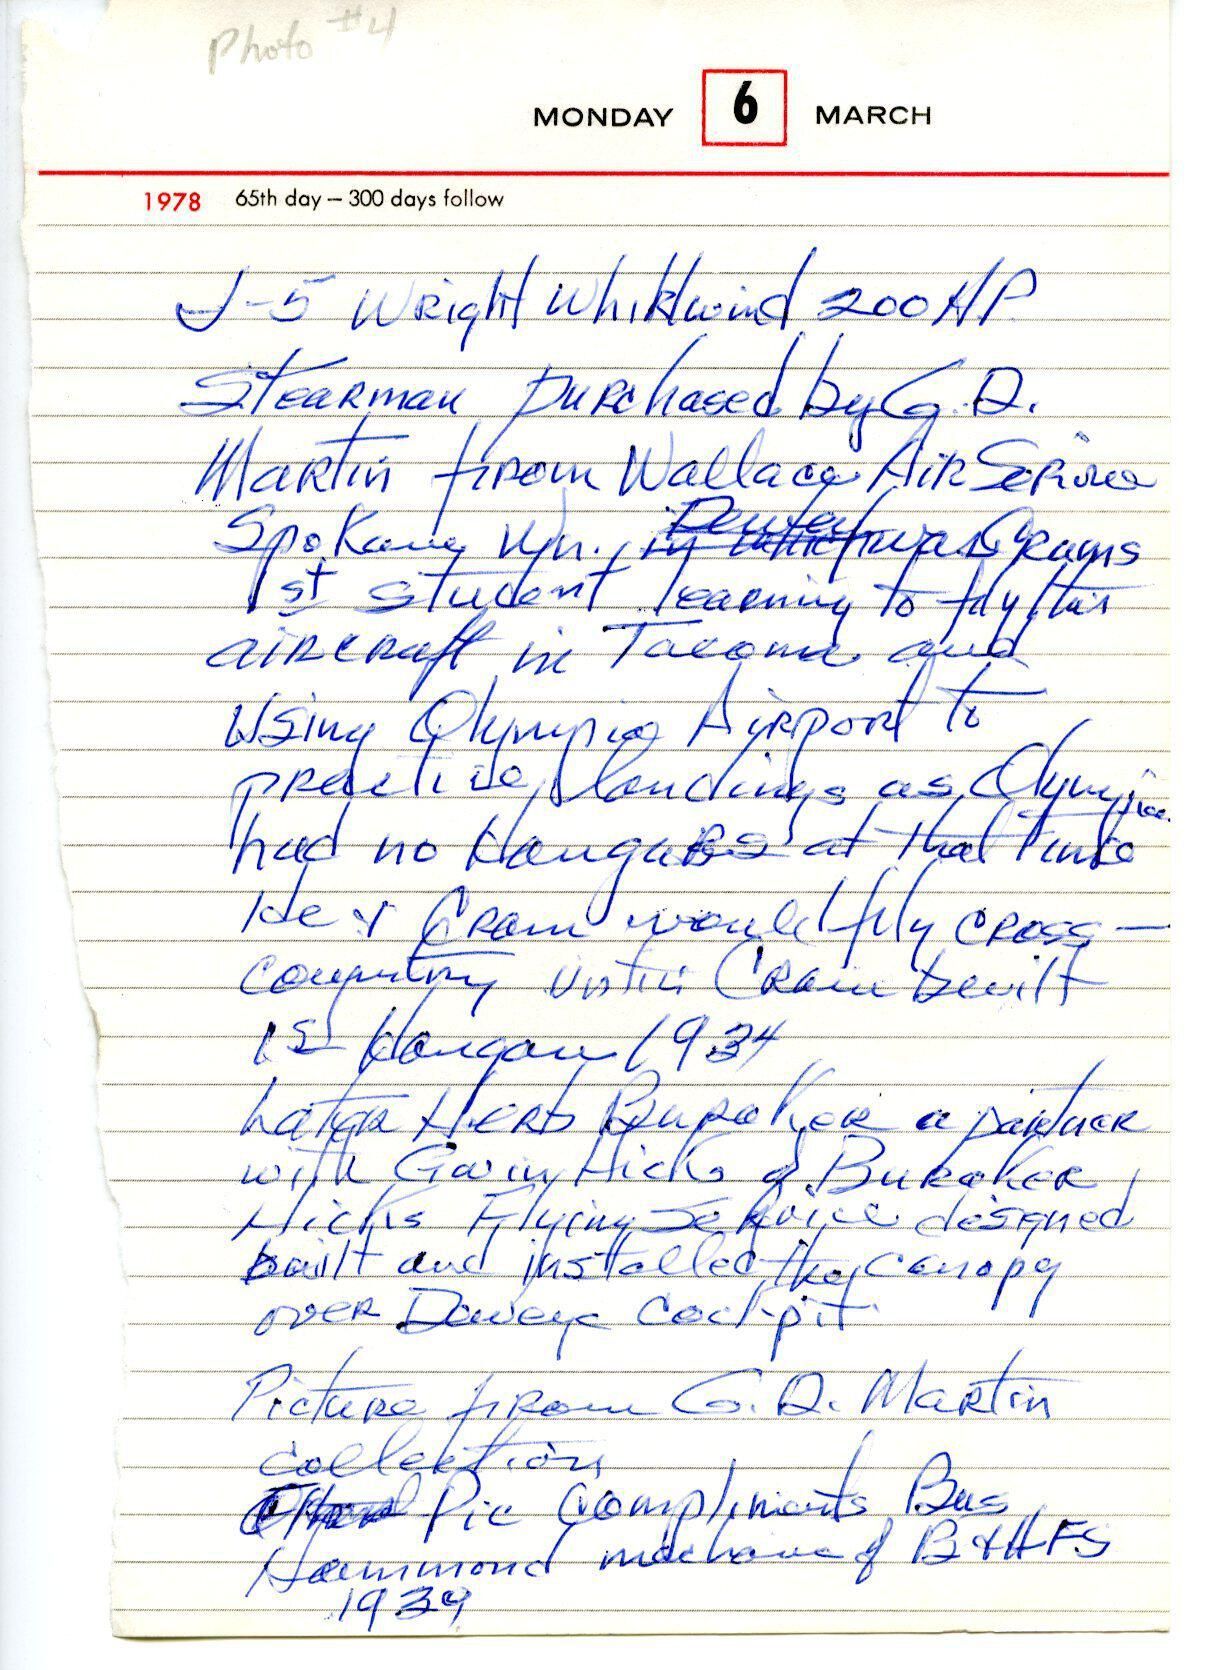 Photo #4
MONDAY 6 MARCH
1978 65th day – 300 days follow
J-5 Wright Whirlwind 200 HP
Stearman purchased by G. D.
Martin from Wallace Air Serivce
Spokane Wn., Dewey Crams
1st student learning to fly this
aircraft in Tacoma and
Using Olympia Airport to
practice landings as Olympia
had no hangars at that time
He & Cram would fly cross–
country until Cram built
1st hangar 1934
Later Herb Buraker a partner
with Gwin Hicks of Buraker,
Hicks Flying Service designed
built and installed the canopy
over Deweys Cockpit
Picture from G. D. Martin
collection
Pic Compliments Bus
Hammond mechanic of B & H FS
1939